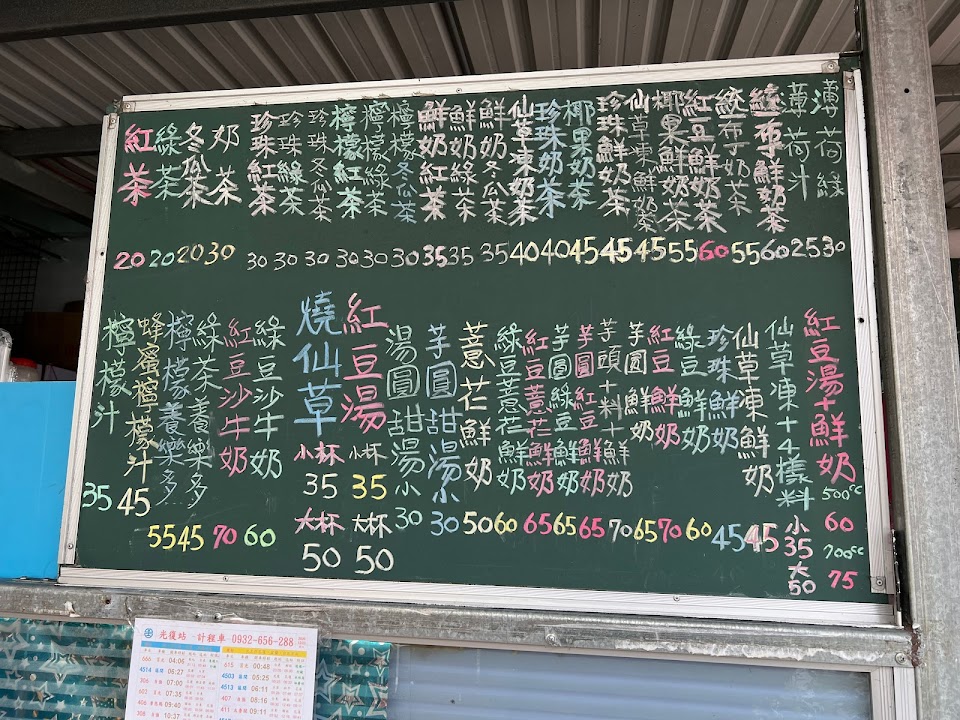 紅茶 20
綠茶 20
冬瓜茶 20
奶茶 30
珍珠紅茶 30
珍珠綠茶 30
珍珠冬瓜茶 30
檸檬紅茶 30
檸檬綠茶 30
檸檬冬瓜茶 30
鮮奶紅茶 35
鮮奶綠茶 35
鮮奶冬瓜茶 35
仙草凍奶茶 40
珍珠奶茶 40
椰果奶茶 45
珍珠鮮奶茶 45
仙草凍鮮奶茶 45
椰果鮮奶茶 55
紅豆鮮奶茶 60
統布丁奶茶 55
統布丁鮮奶茶 60
薄荷汁 25
薄荷綠 30
檸檬汁 35
蜂蜜檸檬汁 45
檸檬養樂多 55
綠茶養樂多 45
紅豆沙牛奶 70
綠豆沙牛奶 60
燒仙草 小杯 35 大杯 50
紅豆湯 小杯 35 大杯 50
湯圓甜湯小 30
芋圓甜湯小 30
薏苡鮮奶 50
綠豆薏苡鮮奶 60
紅豆薏苡鮮奶 65
芋圓綠豆鮮奶 65
芋圓紅豆鮮奶 65
芋頭+料+鮮奶 70
芋圓鮮奶 65
紅豆鮮奶 70
綠豆鮮奶 60
珍珠鮮奶 45
仙草凍鮮奶 45
仙草凍+4樣料 小 35 大 50
紅豆湯+鮮奶 500cc 60 700cc 75
光復站 計程車 0932-656-288
666 04:06
4514 06:27
306 07:00
603 07:35
406 09:40
308 10:37
615 00:48
4503 05:25
4513 06:11
407 08:16
411 09:11